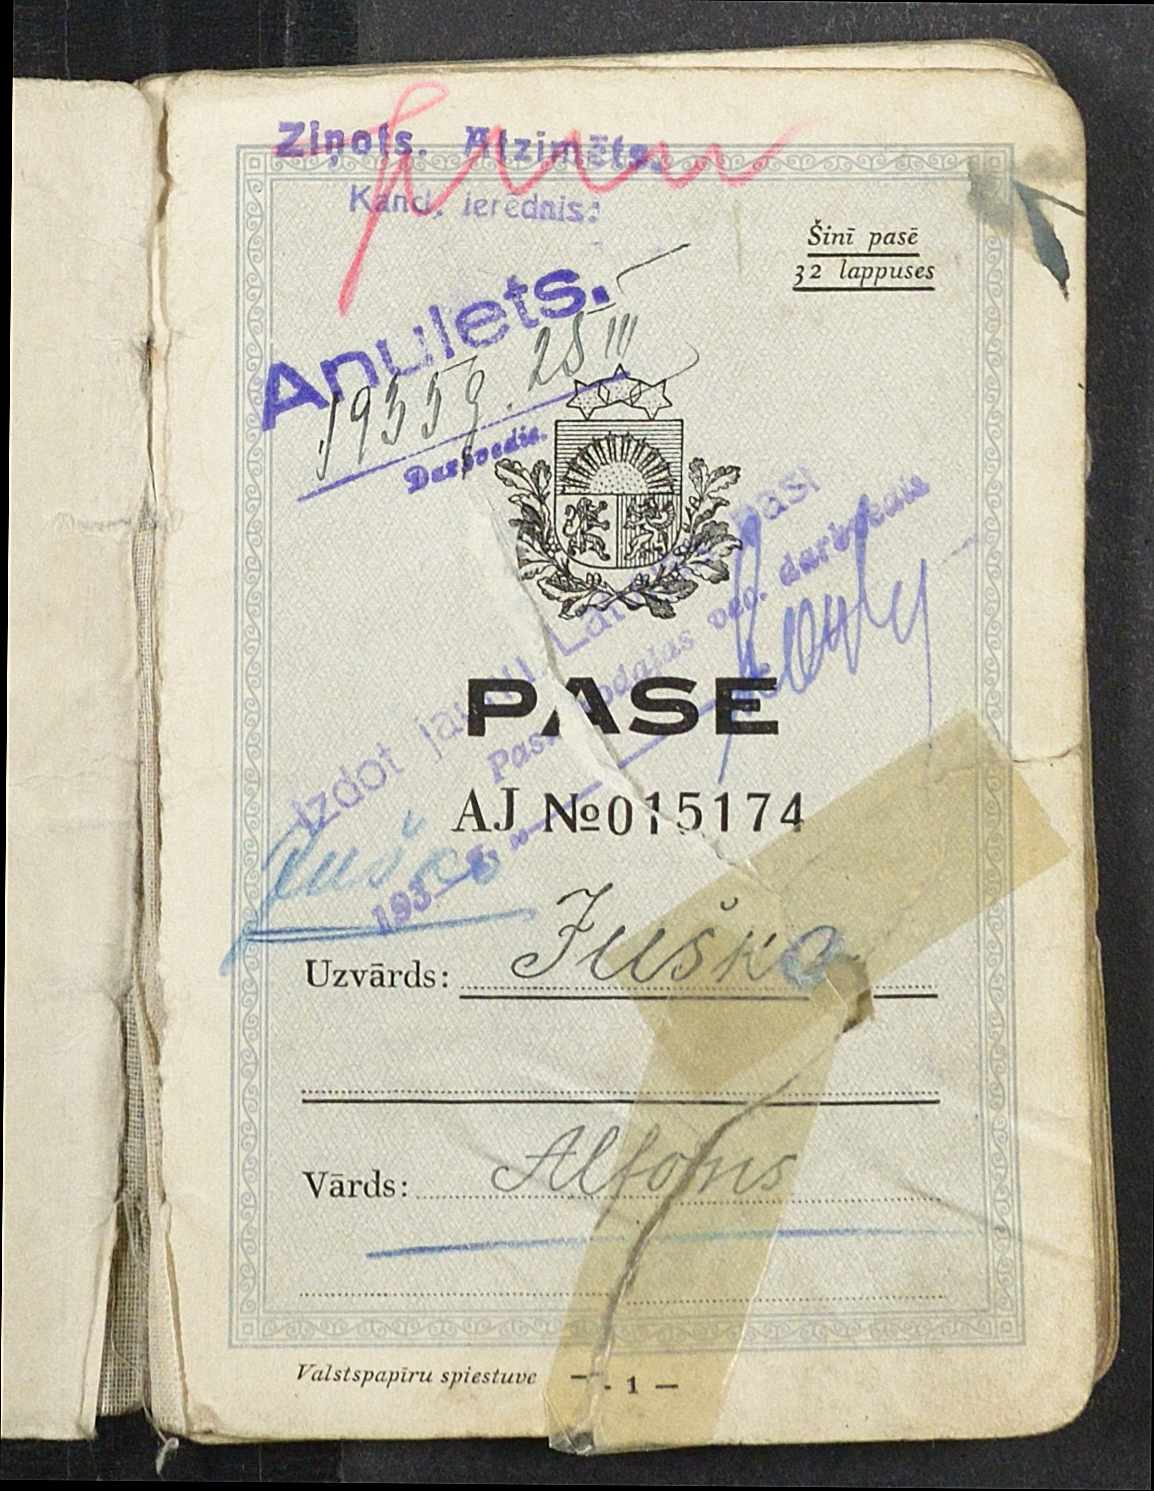 Ziņots. Atzimēts.
Kanc. ierēdnis:
Šinī pasē
32 lappuses
Anulets.
1935 g. 25 III
Darbvedis.
Izdot jaunu Latv. pasi
Pasu nodaļas vec. darbvedis
193
PASE
AJ №015174
Juška
Uzvārds: Juška
Vārds: Alfons
Valstspapīru spiestuve — 1 —